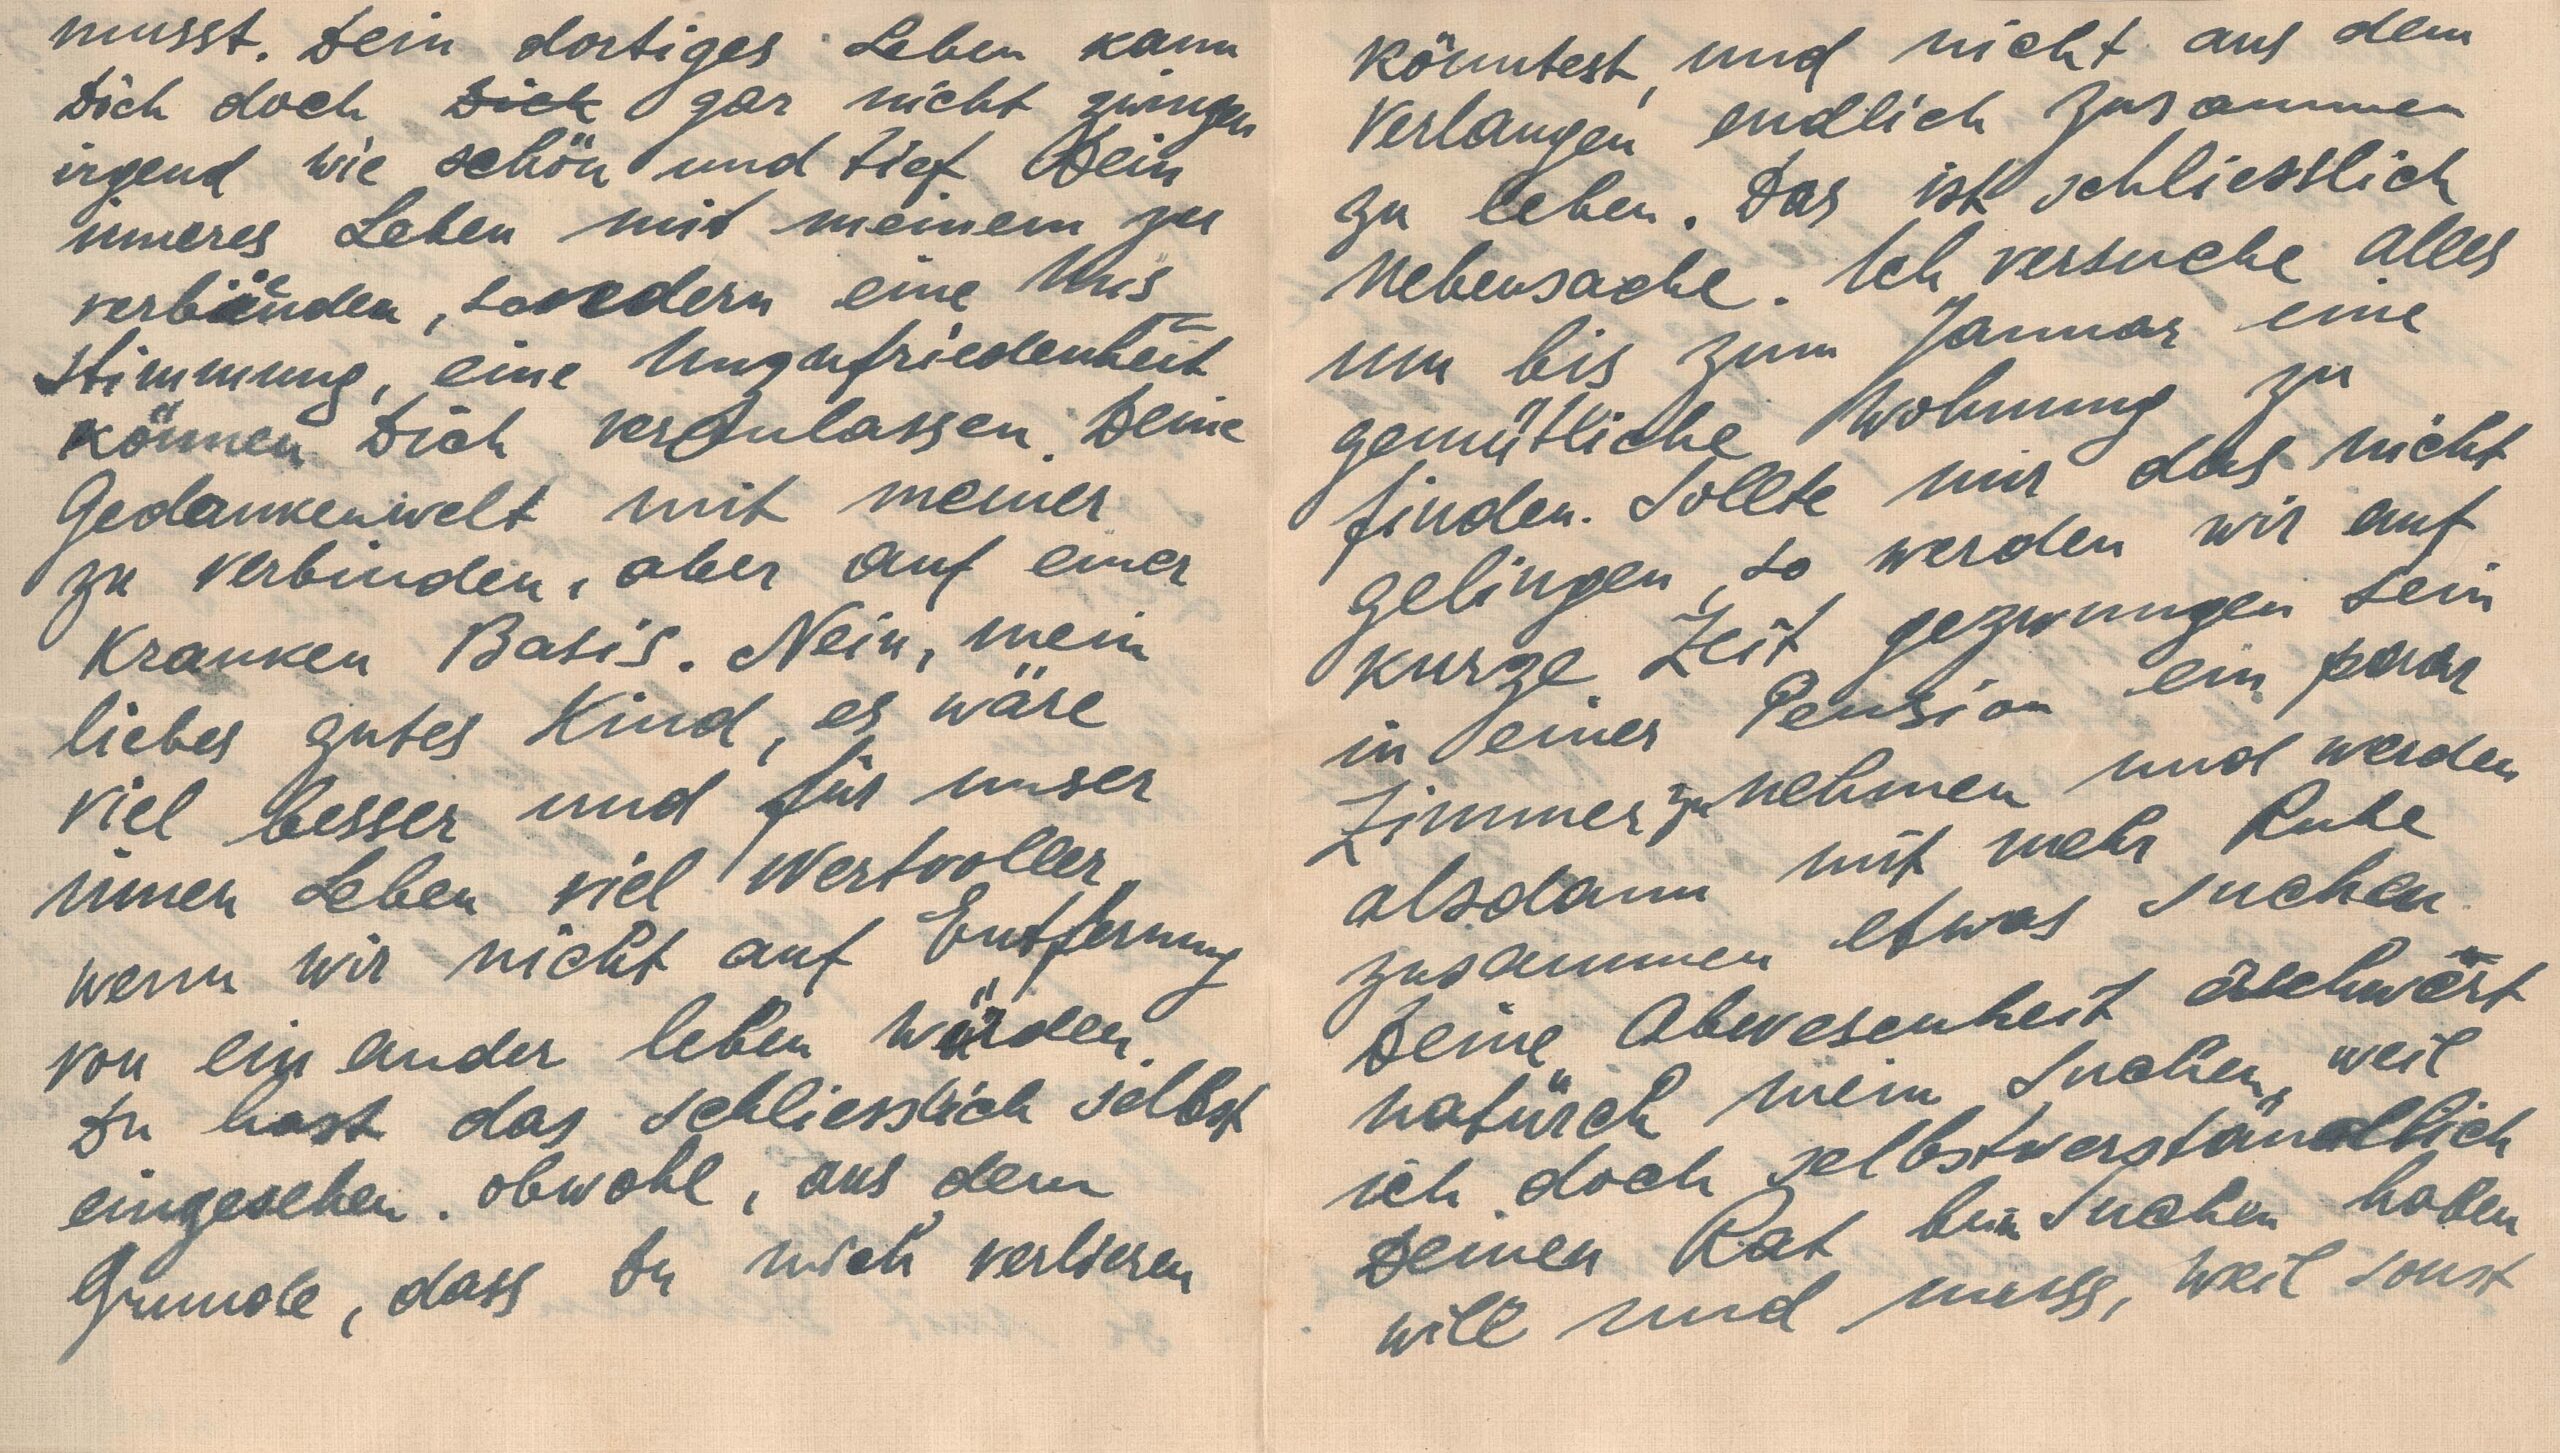 musst. Dein dortiges Leben kann
Dich doch Dich gar nicht zwingen
irgend wie schön und tief Dein
inneres Leben mit meinem zu
verbinden, sondern eine Mis-
stimmung, eine Unzufriedenheit
können Dich veranlassen Deine
Gedankenwelt mit meiner
zu verbinden, aber auf einer
kranken Basis. Nein, mein
liebes gutes Kind, es wäre
viel besser und für unser
innen Leben viel wertvoller,
wenn wir nicht auf Entfernung
von ein ander leben würden.
Du hast das schliesslich selbst
eingesehen. obwohl, aus dem
Grunde, dass Du mich verlieren
könntest, und nicht aus dem
Verlangen endlich zusammen
zu leben. Das ist schliesslich
Nebensache. Ich versuche alles
um bis zum Januar eine
gemütliche Wohnung zu
finden. Sollte mir das nicht
gelingen, so werden wir auf
kurze Zeit gezwungen sein
in einer Pension ein paar
Zimmer zu nehmen und werden
alsdann mit mehr Ruhe
zusammen etwas suchen.
Deine Abwesenheit erschwert
natürch mein Suchen, weil
ich doch selbstverständlich
Deinen Rat beim Suchen haben
will und muss, weil sonst